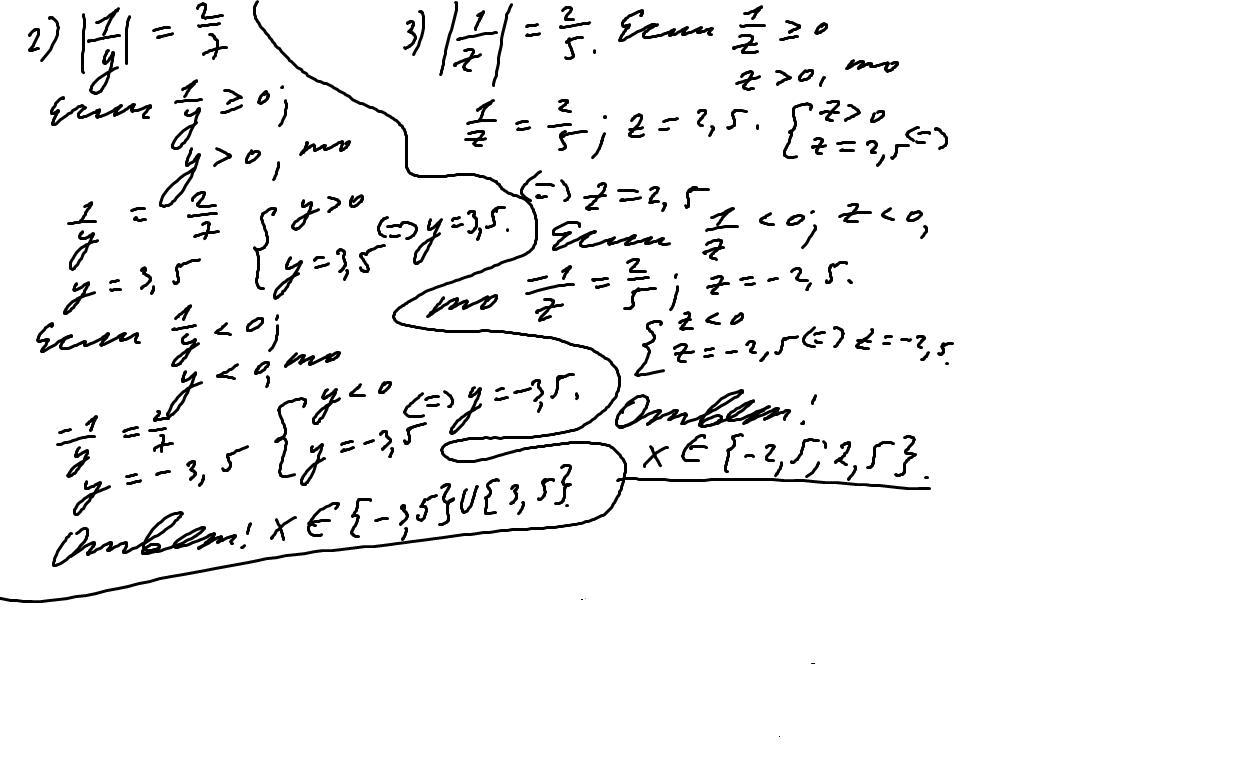 2) |1/y| = 2/7
Если 1/y ≥ 0;
y > 0, то
1/y = 2/7
y = 3,5
{ y > 0
{ y = 3,5 (=) y = 3,5.
Если 1/y < 0;
y < 0, то
-1/y = 2/7
y = -3,5
{ y < 0
{ y = -3,5 (=) y = -3,5.
Ответ! x ∈ {-3,5}U{3,5}.
3) |1/z| = 2/5. Если 1/z ≥ 0
z > 0, то
1/z = 2/5; z = 2,5. { z > 0
{ z = 2,5 (=)
(=) z = 2,5
Если 1/z < 0; z < 0,
то -1/z = 2/5; z = -2,5.
{ z < 0
{ z = -2,5 (=) z = -2,5.
Ответ!
x ∈ {-2,5; 2,5}.